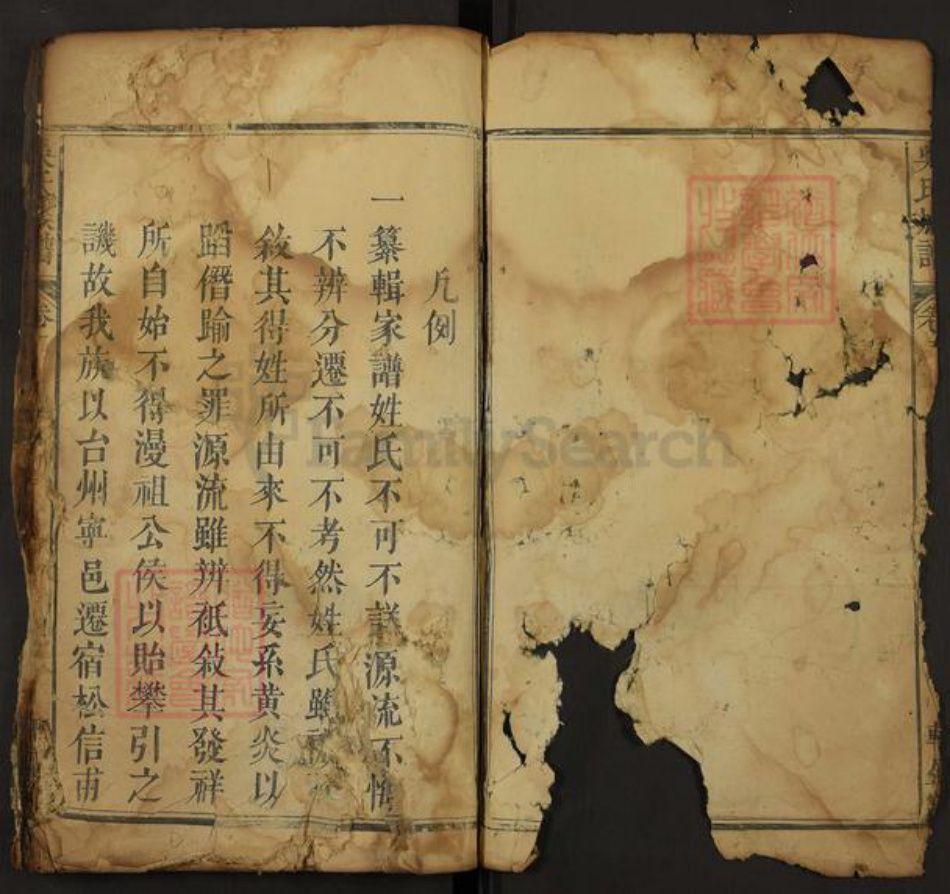 吳氏族譜 卷
凡例
一纂輯家譜姓氏不可不詳源流不
不辨分遷不可不考然姓氏雖
敘其得姓所由來不得妄系黃炎以
蹈僭踰之罪源流雖辨祗敘其發祥
所自始不得漫祖公侯以貽攀引之
譏故我族以台州寧邑遷宿松信甫
FamilySearch